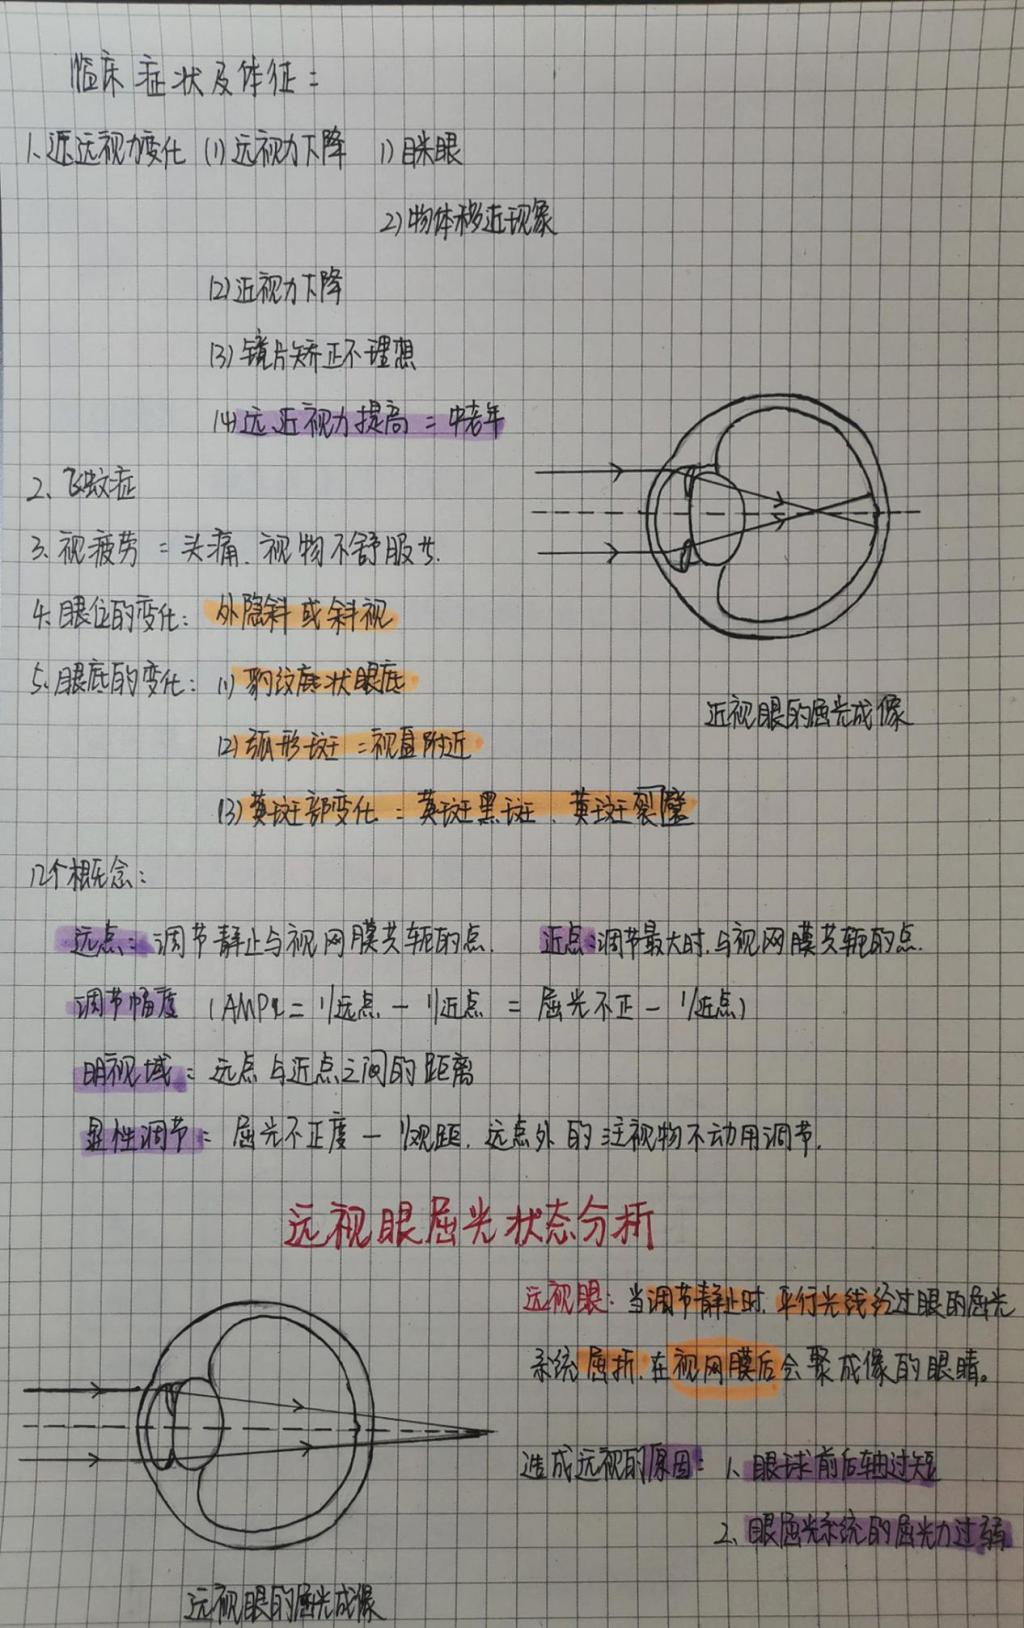 临床症状及体征：
1、近远视力变化 (1)远视力下降 1)眯眼
2)物体移近现象
(2)近视力下降
(3)镜片矫正不理想
(4)远近视力提高：中老年
2、飞蚊症
3、视疲劳：头痛、视物不舒服等.
4、眼位的变化：外隐斜或斜视
5、眼底的变化：(1)豹纹底状眼底
(2)弧形斑：视盘附近
(3)黄斑部变化：黄斑黑斑、黄斑裂隆
近视眼的屈光成像
几个概念：
远点：调节静止与视网膜共轭的点. 近点：调节最大时,与视网膜共轭的点.
调节幅度 (AMPL = 1/远点 - 1/近点 = 屈光不正 - 1/近点)
明视域：远点与近点之间的距离
显性调节：屈光不正度 - 1/视距. 远点外的注视物不动用调节.
远视眼屈光状态分析
远视眼：当调节静止时,平行光线经过眼的屈光
系统屈折,在视网膜后会聚成像的眼睛。
造成远视的原因：1、眼球前后轴过短
2、眼屈光系统的屈光力过弱
远视眼的屈光成像